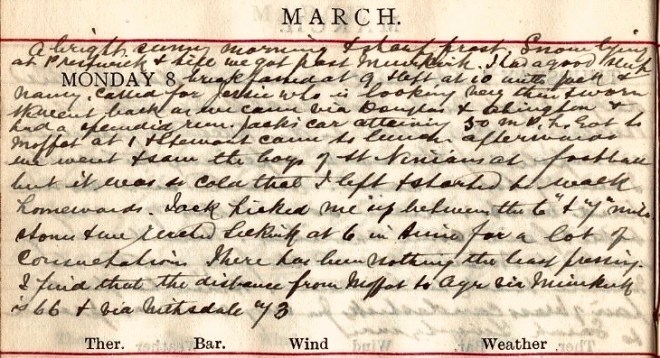 MARCH.
A bright sunny morning & sharp frost. Snow lying
at Prestwick & till we got past Muirkirk. I had a good sleep
MONDAY 8 breakfasted at 9 & left at 10 with Jack &
Nancy. Called for Jessie who is looking very thin & worn
& went back as we came via Douglas & Abington &
had a splendid run. Jack's car attaining 50 m.p.h. Got to
Moffat at 1 & Stewart came to lunch. Afterwards
we went & saw the boys of St Ninians at football
but it was so cold that I left & started to walk
homewards. Jack picked me up between the 6th & 7th mile
stones & we reached at 6 in time for a lot of
Consultations. There has been nothing the least pressing.
I find that the distance from Moffat to Ayr via Muirkirk
is 66 & via Nithsdale 73
Ther. Bar. Wind Weather